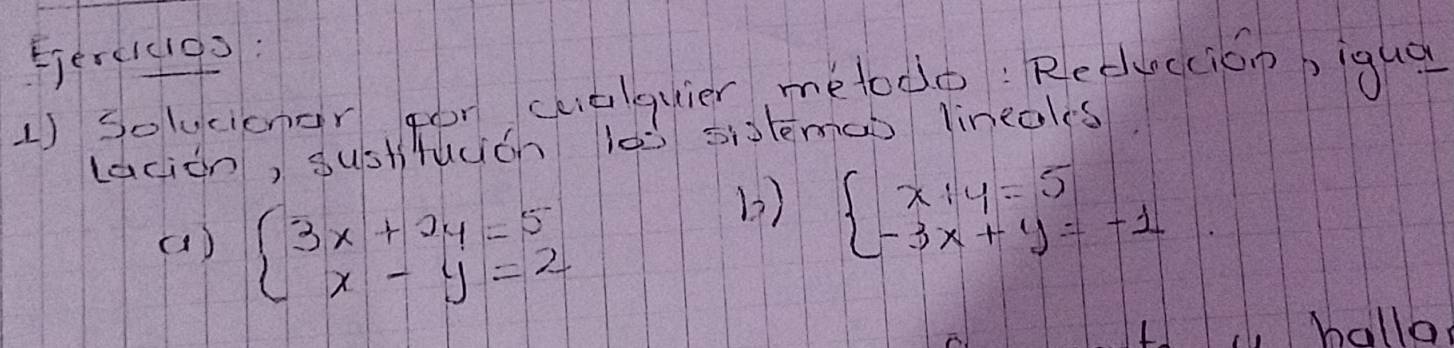 Ejercicios:
1) Solucionar por cualquier método: Reducción, igua
lación, sustitución los sistemas lineales.
a) { 3x + 2y = 5
x - y = 2
b) { x + y = 5
-3x + y = -1.
y hallar